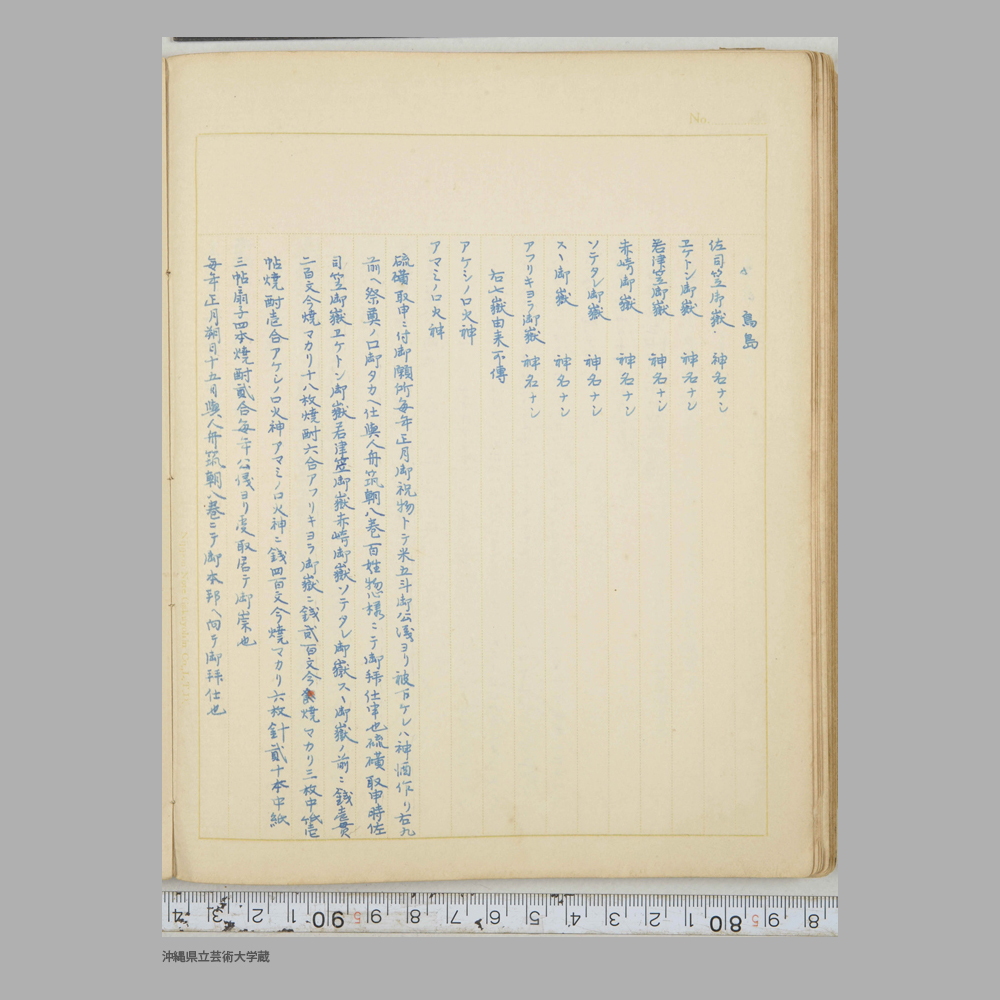 鳥島
佐司笠御嶽 神名ナシ
エケトン御嶽 神名ナシ
若津笠御嶽 神名ナシ
赤崎御嶽 神名ナシ
ソテタレ御嶽 神名ナシ
スヽ御嶽 神名ナシ
アフリキヨラ御嶽 神名ナシ
右七嶽由来不傳
アケシノロ火神
アマミノロ火神
硫磺取申ニ付御願所毎年正月御祝物トテ米五斗御公儀ヨリ被下ケレハ神酒作リ右九
前ヘ祭奠ノロ御タカヘ仕與人舟筑朝八巻百姓惣様ニテ御拝仕事也硫磺取申時佐
司笠御嶽エケトン御嶽若津笠御嶽赤崎御嶽ソテタレ御嶽スヽ御嶽ノ前ニ銭壹貫
二百文今焼マカリ十八枚焼酎六合アフリキヨラ御嶽ニ銭貳百文今焼マカリ三枚中紙壱
帖焼酎壱合アケシノロ火神アマミノロ火神ニ銭四百文今焼マカリ六枚針貳十本中紙
三帖扇子四本焼酎貳合毎年公儀ヨリ受取居テ御崇也
毎年正月朔日十五日與人舟筑朝八巻ニテ御本邦ヘ向テ御拝仕也
No.
4 3 2 1 90 9 8 7 6 5 4 3 2 1 80 9 8
沖縄県立芸術大学蔵